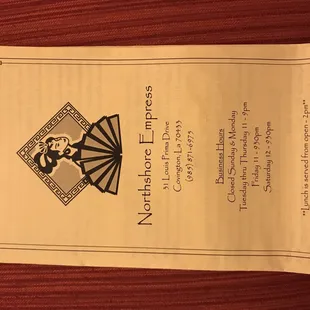 Northshore Empress
31 Louis Prima Drive
Covington, La 70433
(985) 871-6975
Business Hours
Closed Sunday & Monday
Tuesday thru Thursday 11 - 9pm
Friday 11 - 930pm
Saturday 12 - 930pm
**Lunch is served from open - 2pm**